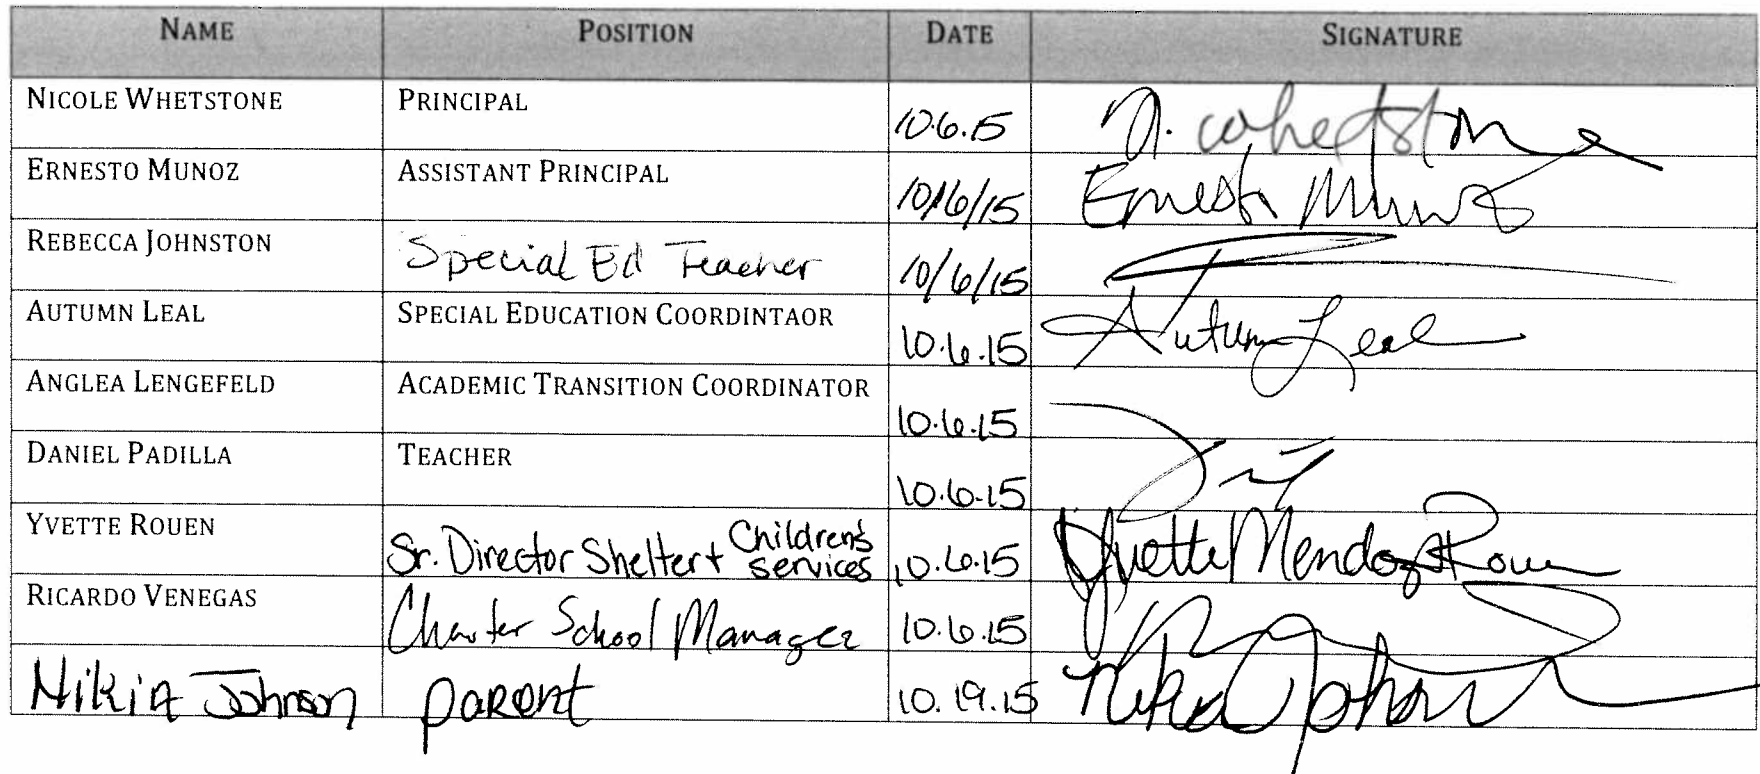 NAME POSITION DATE SIGNATURE
NICOLE WHETSTONE PRINCIPAL 10.6.15 N. Whetstone
ERNESTO MUNOZ ASSISTANT PRINCIPAL 10/6/15 Ernesto Munoz
REBECCA JOHNSTON Special Ed Teacher 10/6/15
AUTUMN LEAL SPECIAL EDUCATION COORDINTAOR 10.6.15 Autumn Leal
ANGLEA LENGEFELD ACADEMIC TRANSITION COORDINATOR 10.6.15
DANIEL PADILLA TEACHER 10.6.15
YVETTE ROUEN Sr. Director Shelter + Children's services 10.6.15 Yvette Mendoza Rouen
RICARDO VENEGAS Charter School Manager 10.6.15
Nikia Johnson parent 10.19.15 Nikia Johnson